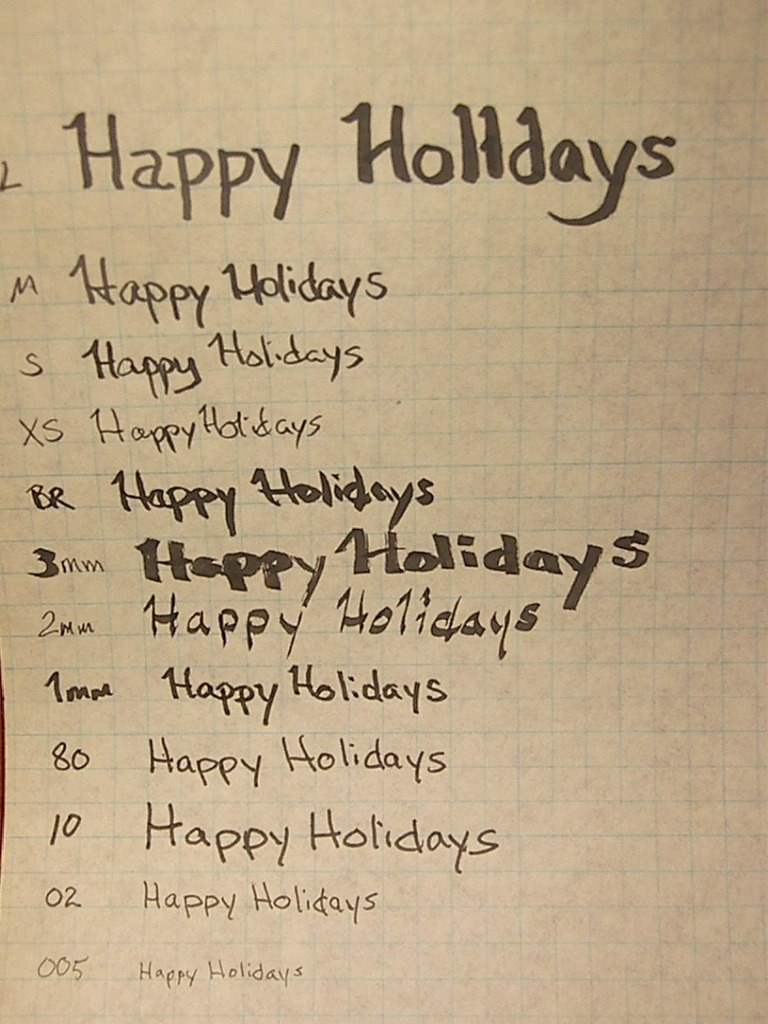 L Happy Holidays
M Happy Holidays
S Happy Holidays
XS Happy Holidays
BR Happy Holidays
3mm Happy Holidays
2mm Happy Holidays
1mm Happy Holidays
80 Happy Holidays
10 Happy Holidays
02 Happy Holidays
005 Happy Holidays